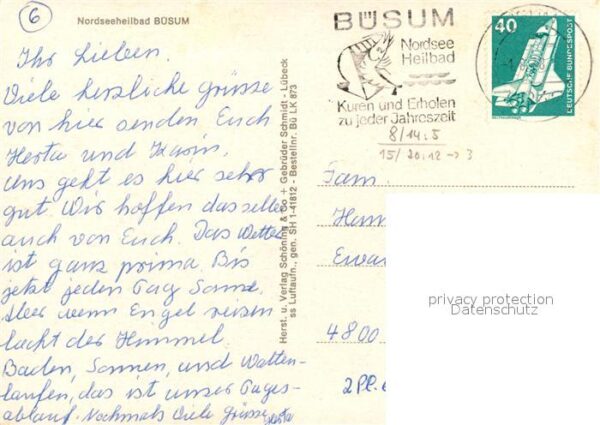 6
Nordseeheilbad BÜSUM
Ihr Lieben.
Viele herzliche Grüsse
von hier senden Euch
Herta und Karin.
Uns geht es hier sehr
gut. Wir hoffen dasselbe
auch von Euch. Das Wetter
ist ganz prima. Bis
jetzt jeden Tag Sonne.
Aber wenn Engel reisen
lacht der Himmel.
Baden, Sonnen, und Watten-
laufen, das ist unser Tages-
ablauf. Nochmals Viele Grüsse
Herta
Herst. u. Verlag Schöning & Co + Gebrüder Schmidt - Lübeck
ss Luftaufn., gen. SH 1-41812 - Bestellnr. Bü LK 873
BÜSUM
Nordsee
Heilbad
Kuren und Erholen
zu jeder Jahreszeit
40
DEUTSCHE BUNDESPOST
8/14.5
15/20.12 → 3
Fam.
4800
privacy protection
Datenschutz